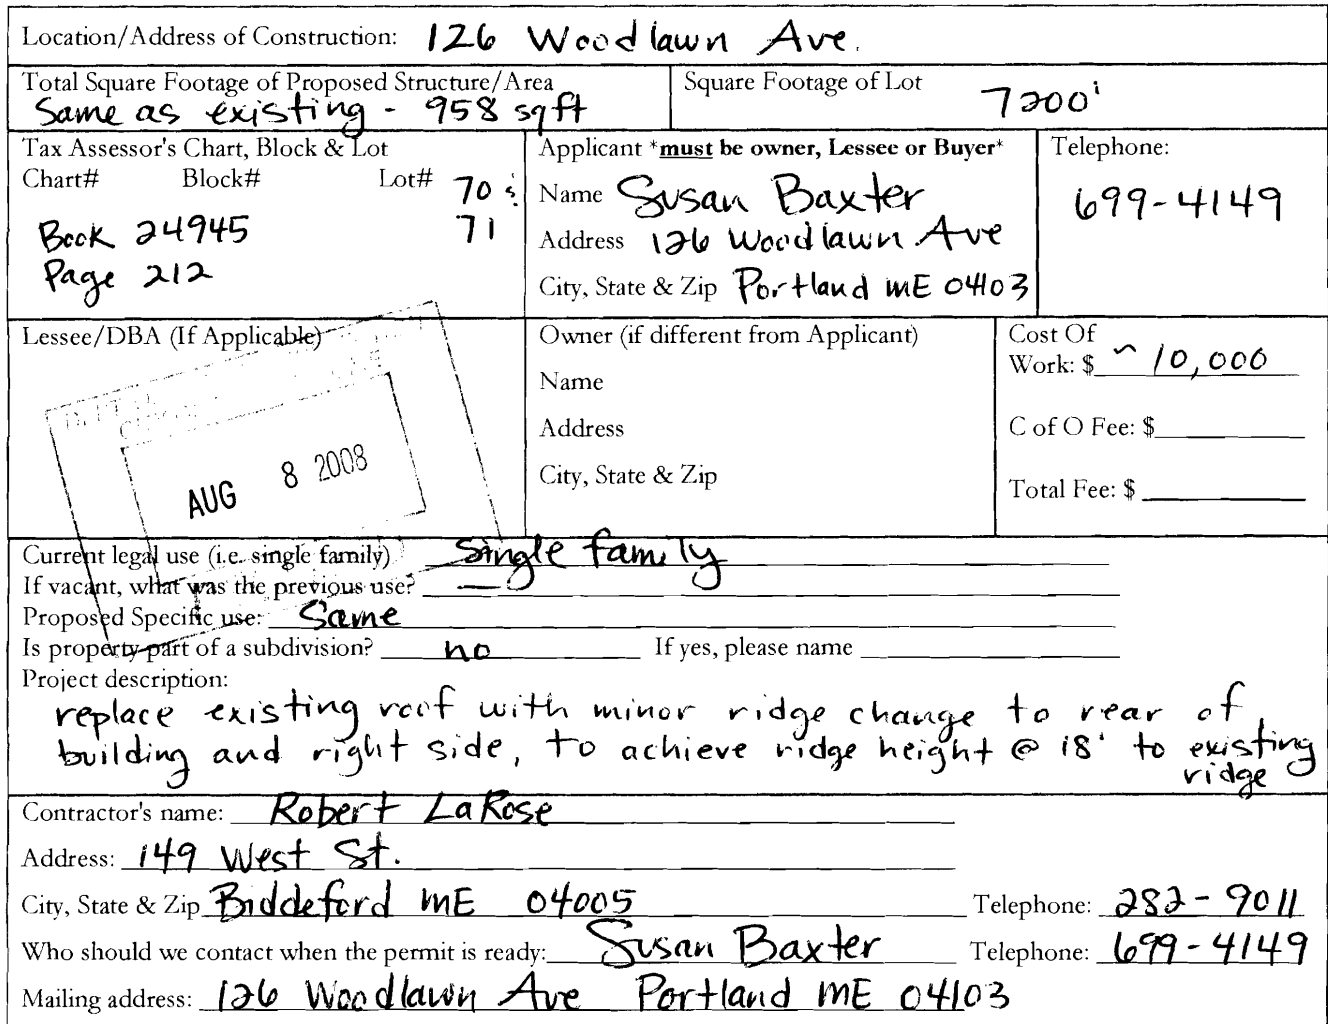 Location/Address of Construction: 126 Woodlawn Ave.
Total Square Footage of Proposed Structure/Area
Same as existing - 958 sqft
Square Footage of Lot
7200'
Tax Assessor's Chart, Block & Lot
Chart# Block# Lot# 70 &
71
Book 24945
Page 212
Applicant *must be owner, Lessee or Buyer*
Name Susan Baxter
Address 126 Woodlawn Ave
City, State & Zip Portland ME 04103
Telephone:
699-4149
Lessee/DBA (If Applicable)
AUG 8 2008
Owner (if different from Applicant)
Name
Address
City, State & Zip
Cost Of
Work: $ ~ 10,000
C of O Fee: $
Total Fee: $
Current legal use (i.e. single family) Single family
If vacant, what was the previous use? —
Proposed Specific use: Same
Is property part of a subdivision? no If yes, please name
Project description:
replace existing roof with minor ridge change to rear of
building and right side, to achieve ridge height @ 18' to existing
ridge
Contractor's name: Robert LaRose
Address: 149 West St.
City, State & Zip Biddeford ME 04005 Telephone: 282-9011
Who should we contact when the permit is ready: Susan Baxter Telephone: 699-4149
Mailing address: 126 Woodlawn Ave Portland ME 04103